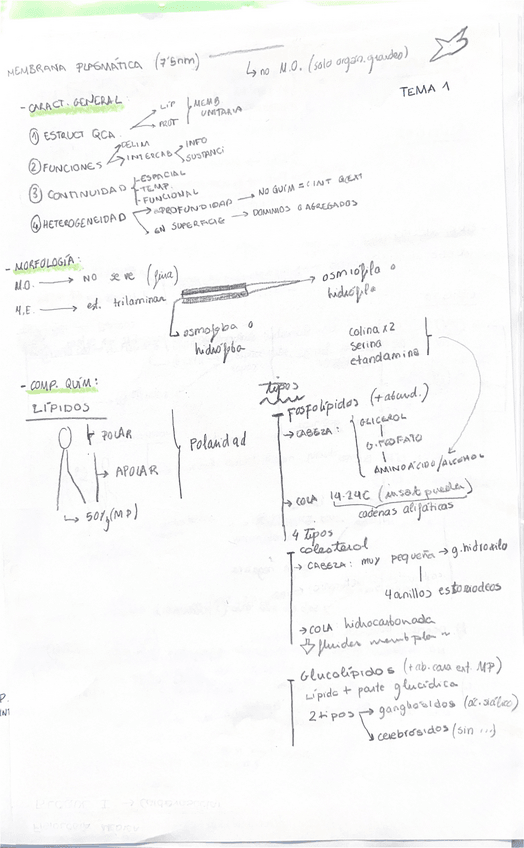 MEMBRANA PLASMÁTICA (7'5nm)
↳ no M.O. (solo organ. grandes)
TEMA 1
- CARACT. GENERAL:
① ESTRUCT QCA → LIP → PROT MEMB UNITARIA
② FUNCIONES → DELIM → INTERCAB → INFO → SUSTANCI
③ CONTINUIDAD - ESPACIAL - TEMP. - FUNCIONAL
④ HETEROGENEIDAD → PROFUNDIDAD → NO QUÍM = INT Q EXT
→ EN SUPERFICIE → DOMINIOS O AGREGADOS
- MORFOLOGÍA:
M.O. → NO se ve (fina)
M.E. → est. trilaminar
→ osmiofila o hidrófila
↳ osmofoba o hidrófoba
colina x2
serina
etandamina
- COMP. QUÍM:
LÍPIDOS
POLAR
→ APOLAR
Polaridad
↳ 50% (MP)
tipos
Fosfolípidos (+abund.)
→ CABEZA: GLICEROL
G. FOSFATO
AMINOÁCIDO/ALCOHOL
→ COLA 14-24C (insat pueden)
cadenas alifáticas
4 tipos
colesterol
→ CABEZA: muy pequeña → g. hidroxilo
4 anillos
→ COLA hidrocarbonada
fluidez
Glucolípidos (+ab. cara ext. MP)
Lípido + parte glucídica
2 tipos → gangliósidos (ác. siálico)
→ cerebrósidos (sin ...)
P.
INT